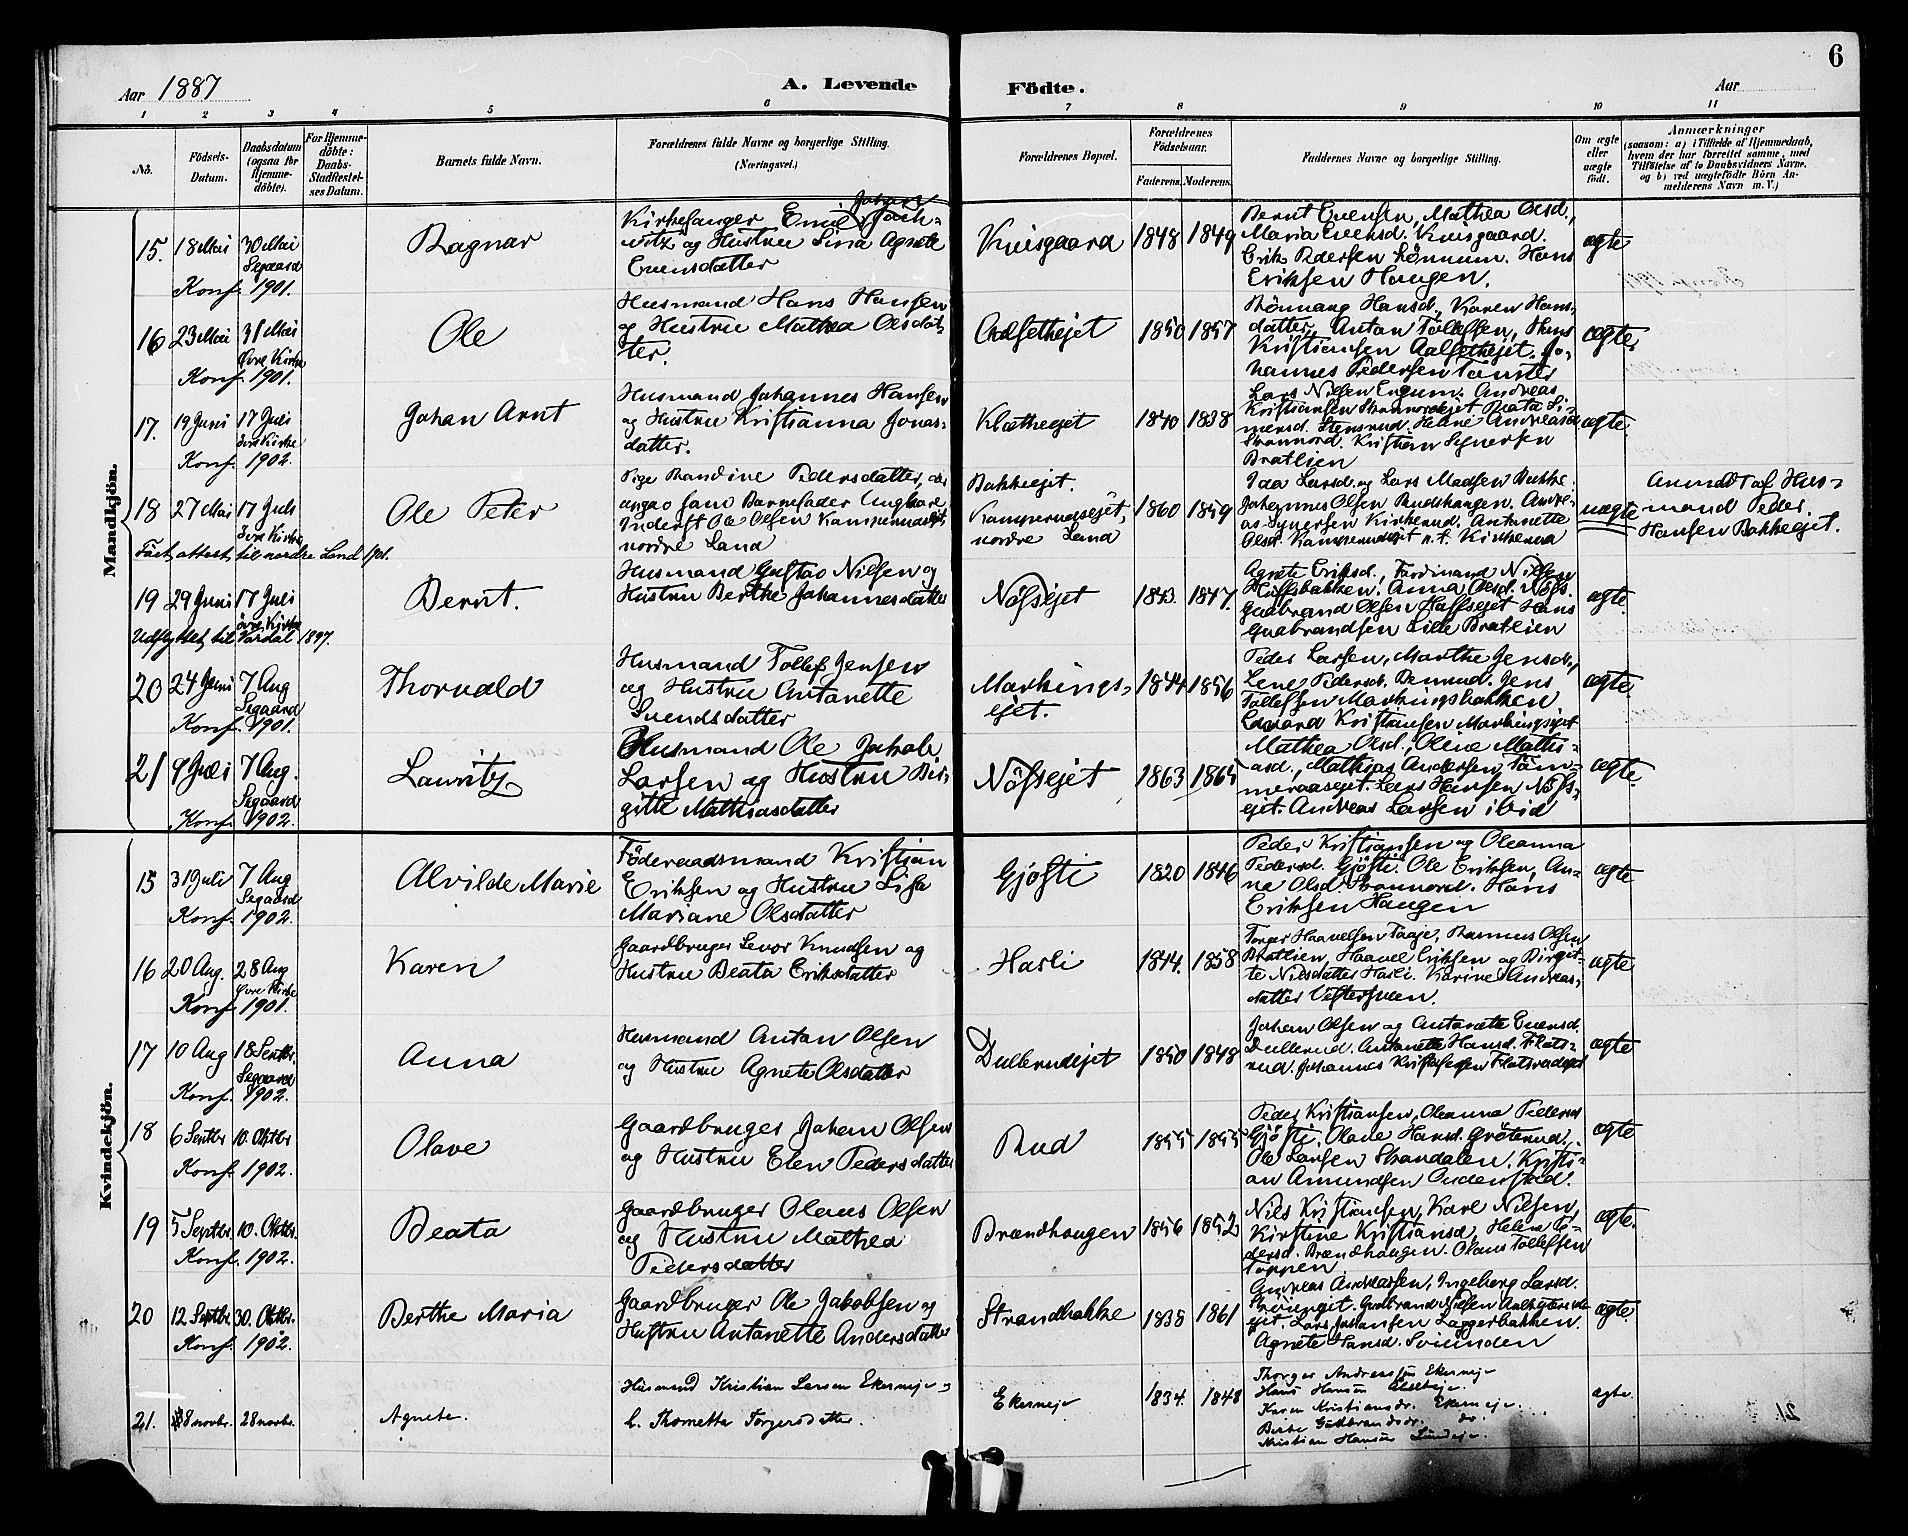 6
Aar 1887
A. Levende
Födte.
Aar
1 2 3 4 5 6 7 8 9 10 11
No.
Födsels-Datum.
Daabsdatum (ogsaa for Hjemme-döbte).
For Hjemme-döbte: Daabs-Stadfæstel-ses Datum.
Barnets fulde Navn.
Forældrenes fulde Navne og borgerlige Stilling.
(Næringsvei.)
Forældrenes Bopæl.
Forældrenes Födselsaar.
Faderens. Moderens.
Faddernes Navne og borgerlige Stilling.
Om ægte eller uægte födt.
Anmærkninger
(saasom: a) i Tilfælde af Hjemmedaab,
hvem der har forrettet samme, med
Tilföielse af to Daabsvidners Navne.
og b) ved uægtefödte Börn An-
melderens Navn m. V.)
Mandkjön.
15. 18 Mai 30 Mai Segaard
Konf. 1901.
Ragnar
Kirkesanger Emil Johan
witz og Hustru Lina Agnete
Evensdatter
Kviisgaard 1848 1849
Bernt Evensen, Mathea Olsd.,
Maria Evensd. Kviisgaard.
Erik Pedersen Lönnum. Hans
Eriksen Haugen.
ægte
16 23 Mai 31 Mai Övre Kirke
Konf. 1901.
Ole
Husmand Hans Hansen
og Hustru Mathea Olsdat-
ter.
Aalsethejet 1850 1857
Hansd., Karen Hans-
datter, Antan Tollefsen, Hans
Kristiansen Aalsethejet. Jo-
hannes Pedersen
ægte.
17. 19 Juni 17 Juli Övre Kirke
Konf. 1902.
Johan Arnt
Husmand Johannes Hansen
og Hustru Kristianna Jonas-
datter.
Klætheejet 1840 1838
Lars Nilsen Engum. Andreas
Kristiansen Strannordejet Beata Si-
mensd. Stensrud. Helene Andreasd.
Strannord. Kristian Synersen
Bratlien
ægte.
18 27 Mai 17 Juli Övre Kirke
Ole Peter
Pige Randine Pedersdatter,
Ungkarl
Inderst Ole Olsen Kamperudsejet,
nordre Land
Bakkeejet.
Kamperudsejet,
nordre Land
1860 1859
Ida Larsd. og Lars Madsen Bakke.
Johannes Olsen Rudshaugen. Andre-
as Synersen Kirkerud. Antonette
Olsd. Kamperudejet n. f. Kirkerud
uægte
Anmeldt af Hus-
mand Peder
Hansen Bakkeejet.
attest til nordre Land 1901.
19 29 Juni 17 Juli övre Kirke
Bernt.
Husmand Gustav Nilsen og
Hustru Berthe Johannesdatter
Nössejet 1843 1847.
Agnete Eriksd., Ferdinand Nilsen
Hoffsbakken. Anna Olsd. Nöss.
Gudbrand Olsen Hoffsejet Hans
Gudbrandsen Lille Bratlien
ægte.
Udflyttet til Vardal 1897.
20 24 Juni 7 Aug Segaard
Konf. 1901.
Thorvald
Husmand Tollef Jensen
og Hustru Antanette
Svendsdatter
Markings-
ejet.
1844 1856
Peder Larsen, Marthe Jensd.,
Lene Pedersd. Jens
Tollefsen Markingsbakken
Edvard Kristiansen Markingsejet
ægte.
21 9 Juli 7 Aug. Segaard
Konf. 1902.
Lauritz
Husmand Ole Jakob
Larsen og Hustru Bir-
gitte Mathiasdatter
Nössejet 1863 1865
Mathea Olsd., Oline Mathi-
asd., Mathias Andersen
Lars Hansen Nöss-
ejet. Andreas Larsen ibid
ægte.
Kvindekjön.
15 31 Juli 7 Aug Segaard
Konf. 1902.
Alvilde Marie
Föderaadsmand Kristian
Eriksen og Hustru Lisa
Mariane Olsdatter
Gjösti 1820 1846
Peder Kristiansen og Oleanna
Pedersd. Gjösti. Ole Eriksen, An-
na Olsd. Strannord. Hans
Eriksen Haugen
ægte
16 20 Aug. 28 Aug Övre Kirke
Konf. 1901.
Karen
Gaardbruger Levor Knudsen og
Hustru Beata Eriksdatter
Hasli 1844. 1858
Torger Haavelsen Taaje, Rasmus Olsen
Bratlien, Haavel Eriksen og Birgit-
te Nilsdatter Hasli. Karine Andreas-
datter
ægte.
17 10 Aug 18 Septbr. Segaard
Konf. 1902.
Anna
Husmand Antan Olsen
og Hustru Agnete Olsdatter
Dullerudejet 1850 1848
Johan Olsen og Antanette Evensd.
Dullerud. Antonette Hansd. Flats-
rud. Johannes Kristofersen Flatsrudejet
ægte
18 6 Septbr 10. Oktbr
Konf. 1902.
Olave
Gaardbruger Johan Olsen
og Hustru Elen Pedersdatter
Rud 1855 1855
Peder Kristiansen, Oleanna Pedersd
Gjösti, Olave Hansd. Gröterud.
Ole Larsen Strandalen. Kristi-
an Amundsen
ægte
19 5 Septbr 10. Oktbr.
Konf. 1902.
Beata
Gaardbruger Olaus Olsen
og Hustru Mathea
Pedersdatter
Brændhaugen 1856 1852
Nils Kristiansen, Karl Nilsen,
Kirstine Kristiansd, Helene Pe-
dersd. Brændhaugen. Olaus Tollefsen
Toppen
ægte.
20 12 Septbr 30. Oktbr.
Konf. 1902.
Berthe Maria
Gaardbruger Ole Jakobsen og
Hustru Antanette Andersdatter
Strandbakke 1838 1861
Andreas Andreassen, Ingeborg Larsd.
Gudbrand Nilsen
ejet. Lars Johansen Laggerbakken.
Agnete Hansd.
ægte.
21. 8 novbr. 28 novbr.
Agnete.
Husmand Kristian Larsen Ekerneje og
h. Thometta Torgersdatter.
Ekerneje 1834. 1848
Thorger Andreassen Ekerneje
Hans Hansen
Karen Kristiansdr. Ekerneje.
Berte Gudbrandsdr. do.
Kristian Hansen
ægte.